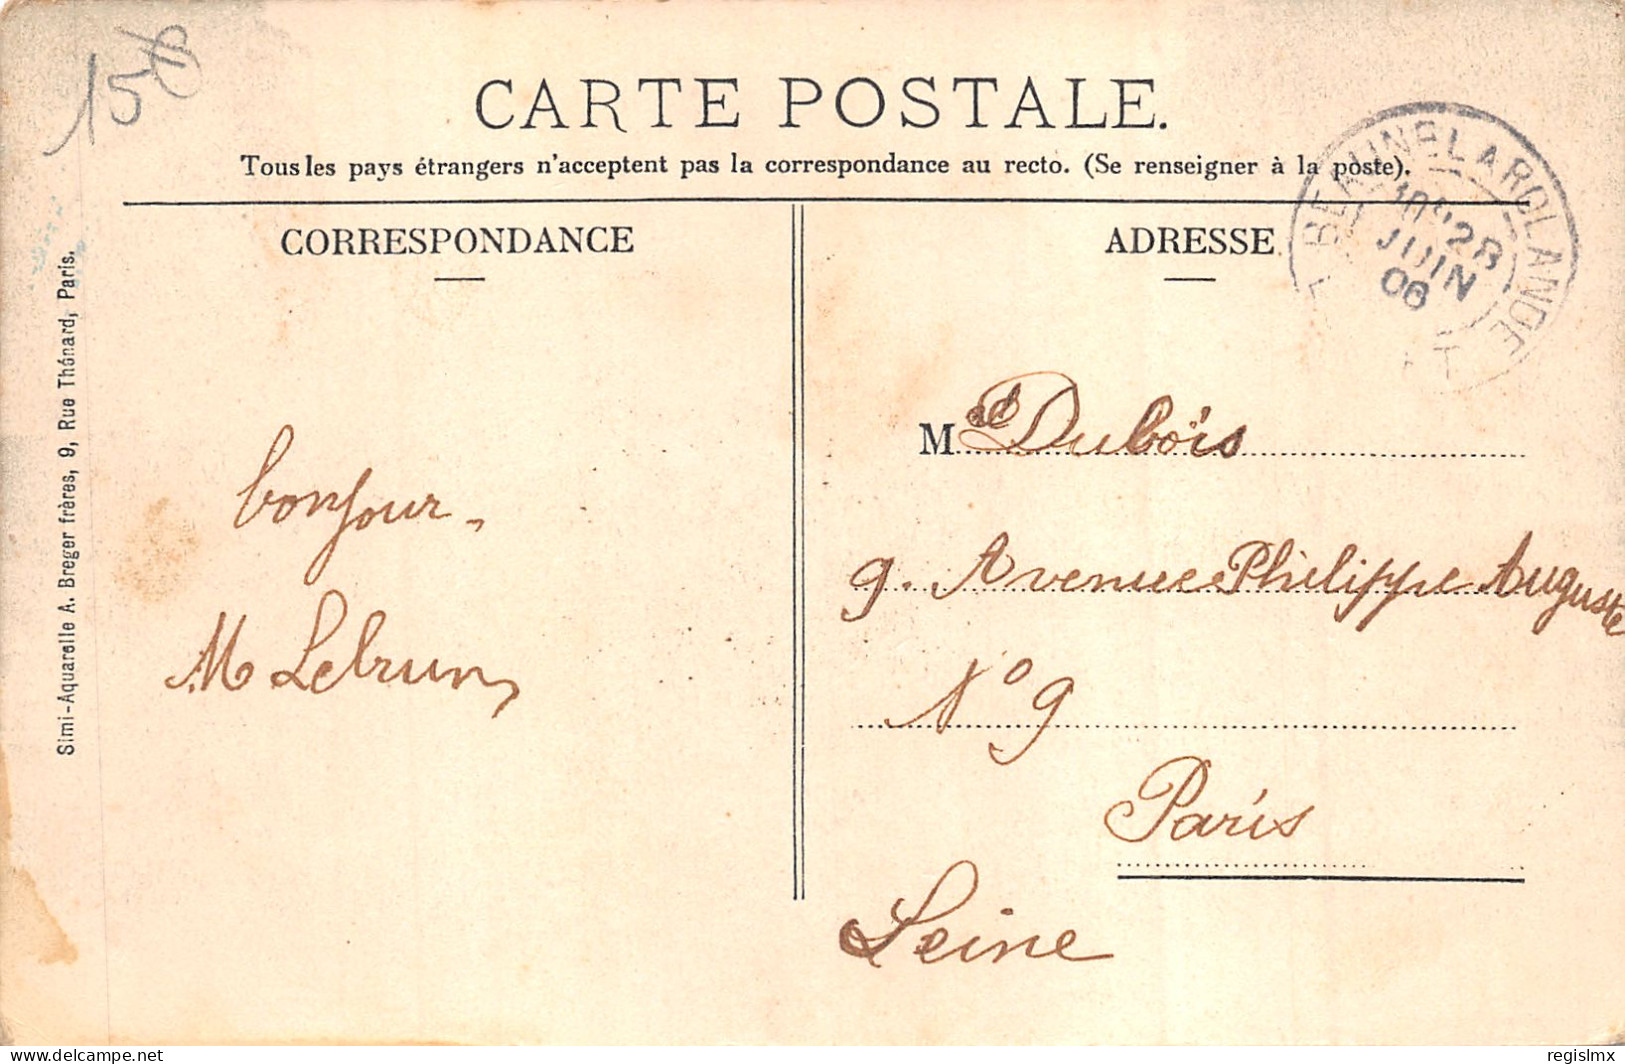 15€
CARTE POSTALE.
Tous les pays étrangers n'acceptent pas la correspondance au recto. (Se renseigner à la poste).
CORRESPONDANCE
ADRESSE
BEAUNE LA ROLANDE
28
JUIN
06
Simi-Aquarelle A. Breger frères, 9, Rue Thénard, Paris.
bonjour
M Lebrun
M Dubois
9. Avenue Philippe Auguste
No 9
Paris
Seine
www.delcampe.net
regislmx